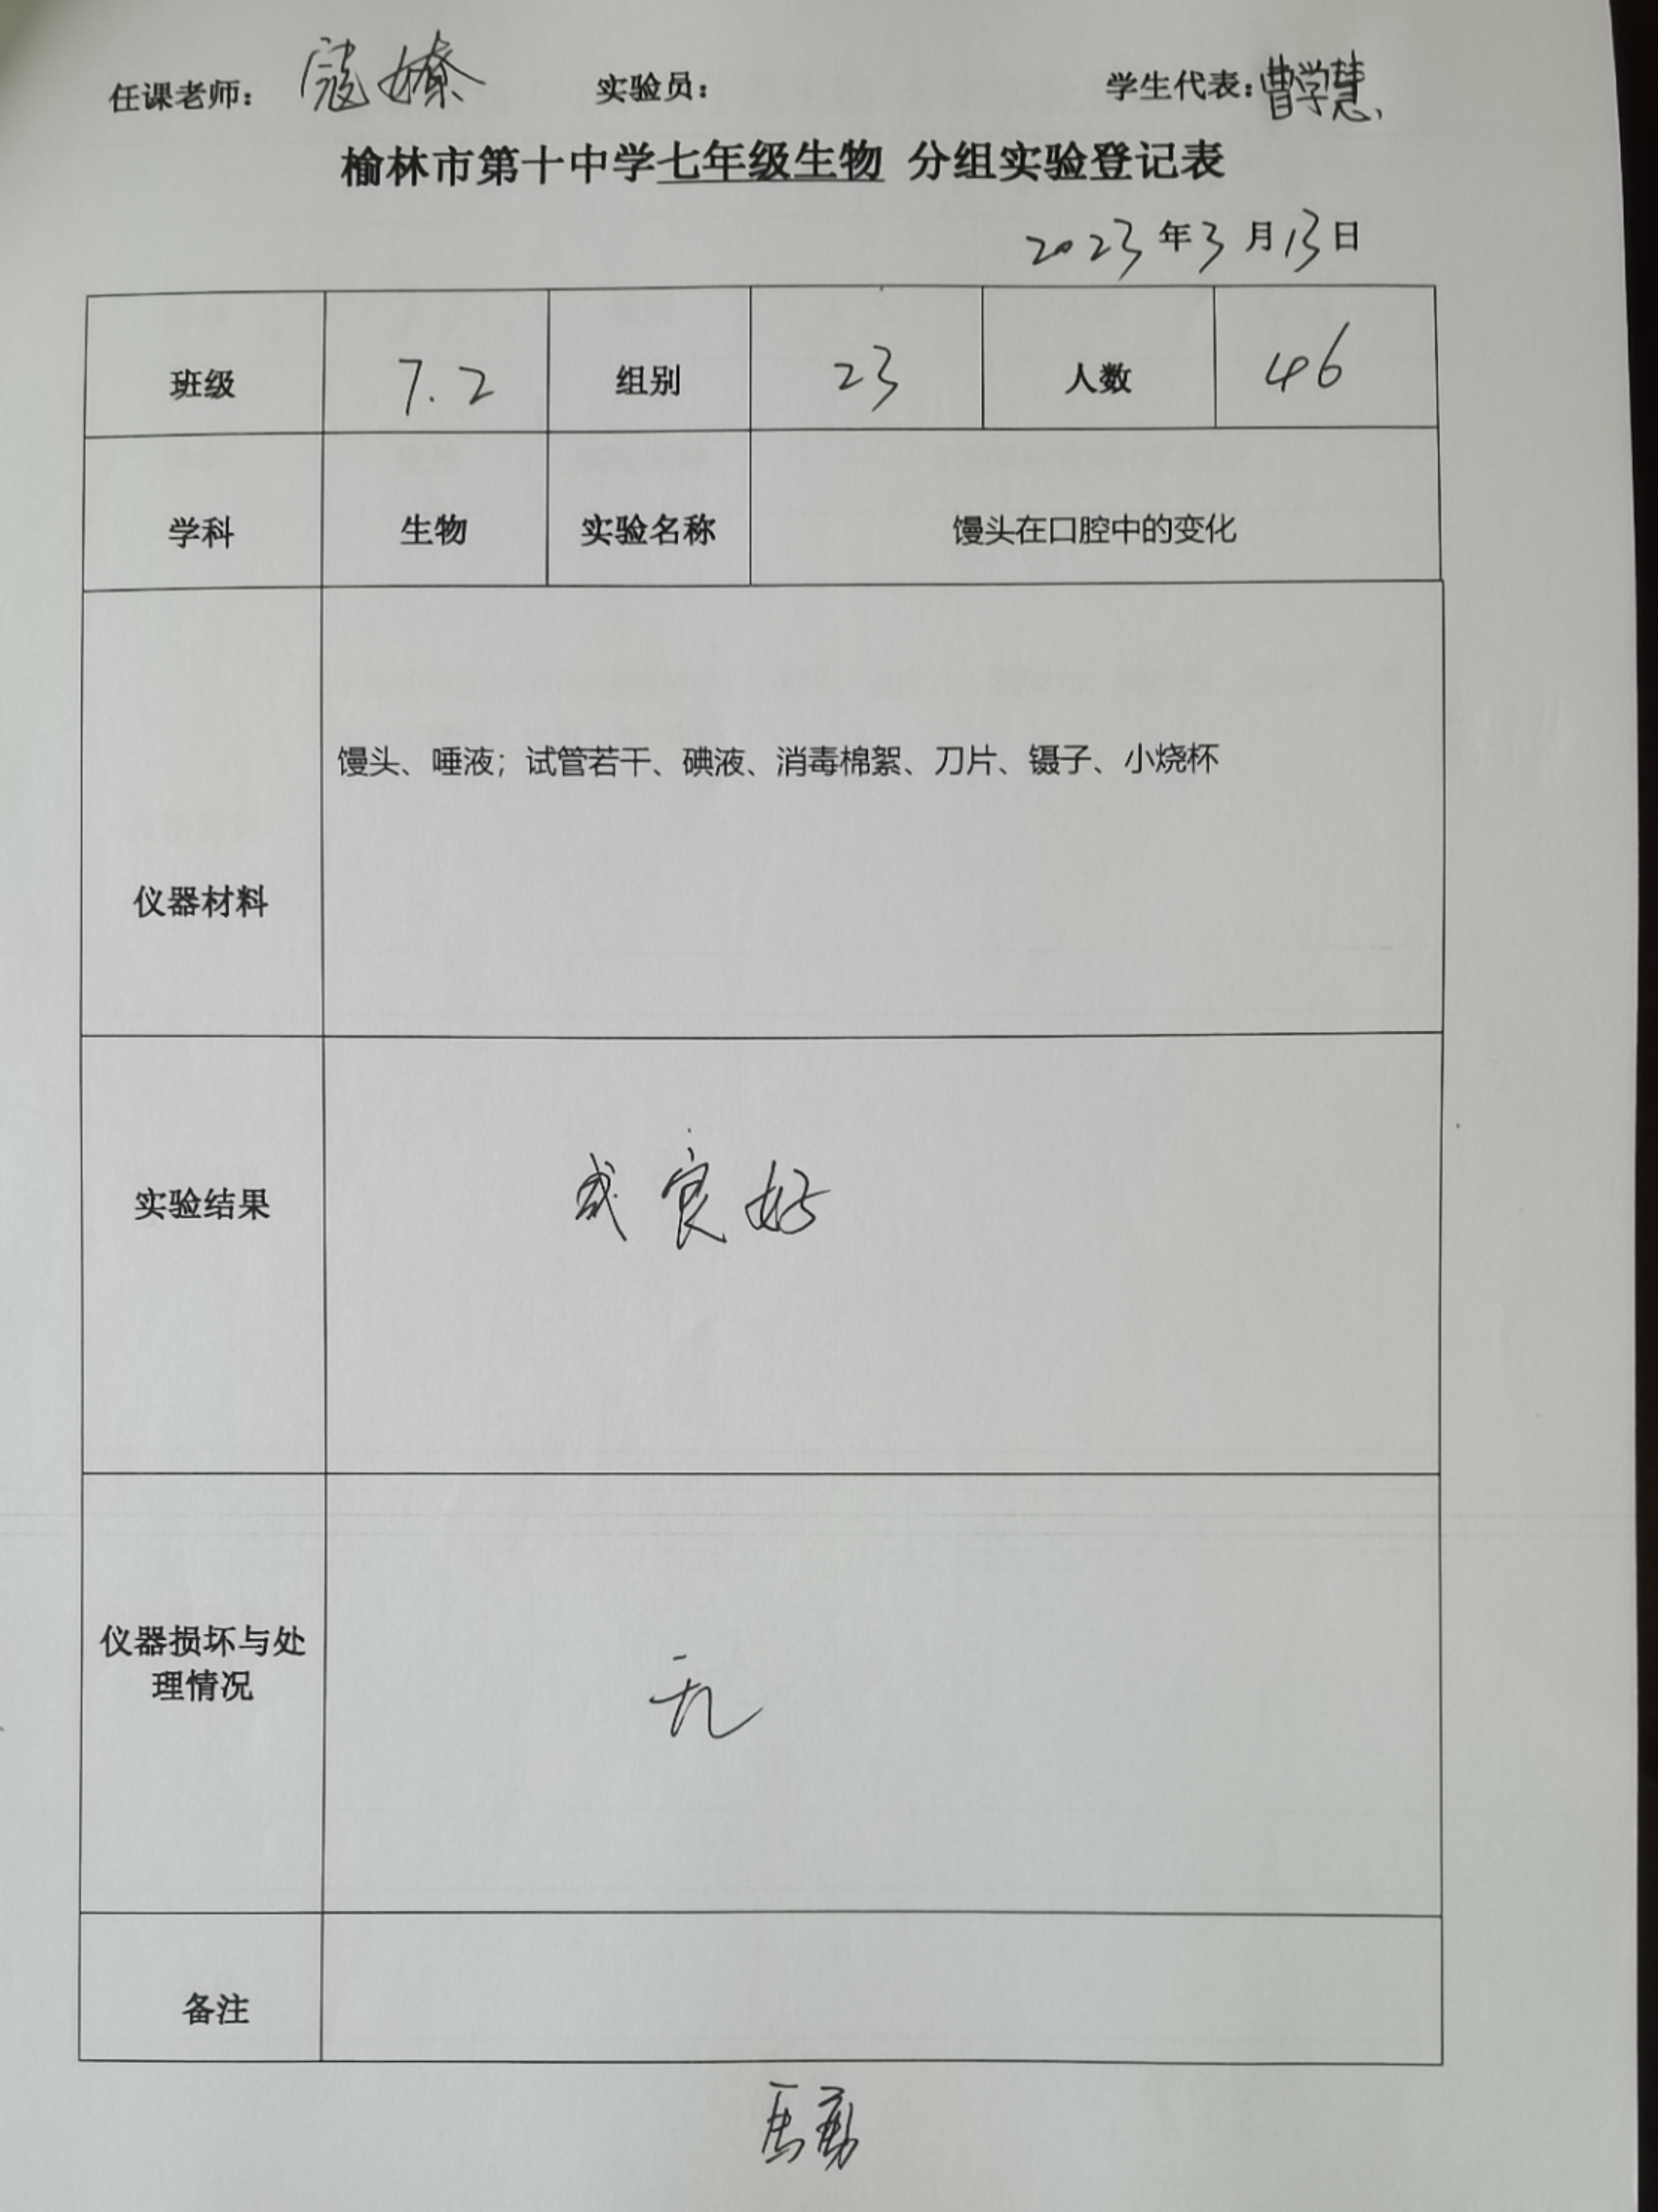 任课老师： 寇嫽 实验员： 学生代表：曹学慧
榆林市第十中学七年级生物 分组实验登记表
2023年3月13日
班级 7.2 组别 23 人数 46
学科 生物 实验名称 馒头在口腔中的变化
仪器材料 馒头、唾液；试管若干、碘液、消毒棉絮、刀片、镊子、小烧杯
实验结果 良好
仪器损坏与处
理情况
无
备注